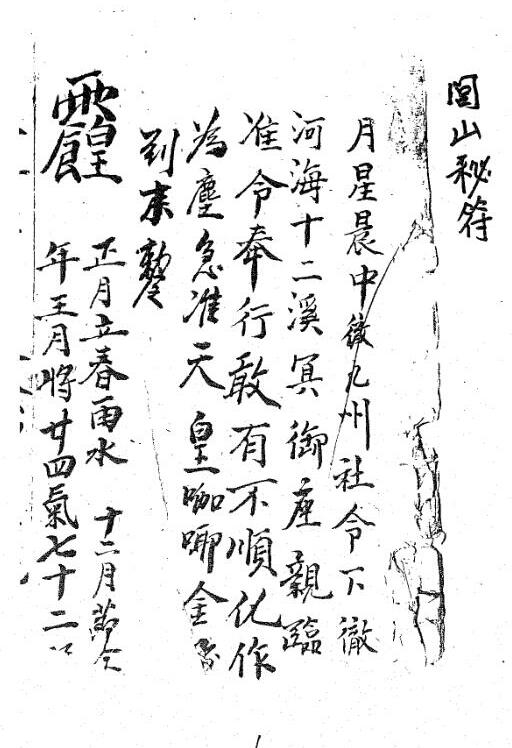 閭山秘符
月星晨中 九州社令下徹
河海十二溪冥御座親臨
准令奉行敢有不順化作
為塵急准天皇 金
到未
正月立春雨水 十二月節令
年王月將廿四氣七十二
1